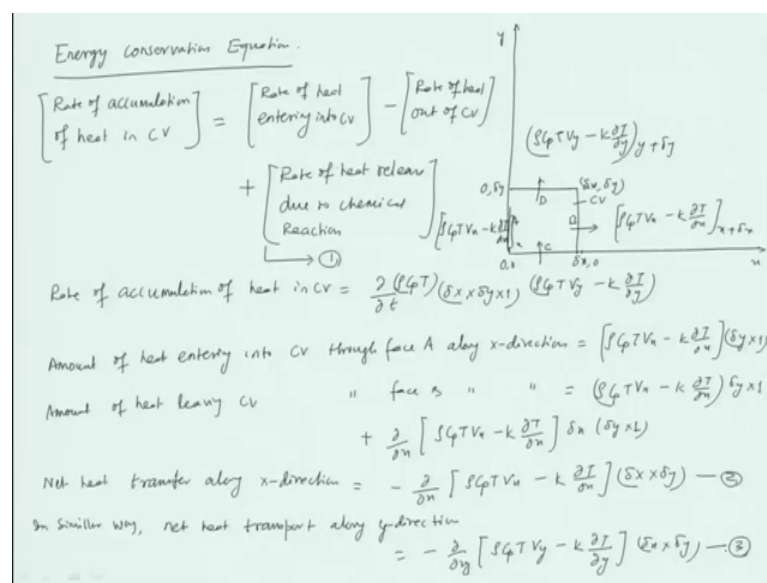 Energy conservation Equation.
[Rate of accumulation of heat in CV] = [Rate of heat entering into CV] - [Rate of heat out of CV]
+ [Rate of heat release due to chemical Reaction]
→ ①
y
(ρCpTVy - k ∂T/∂y)y+δy
0,δy
(δx,δy)
D
CV
B
[ρCpTVx - k ∂T/∂x]x
[ρCpTVx - k ∂T/∂x]x+δx
C
0,0
δx,0
x
(ρCpTVy - k ∂T/∂y)
Rate of accumulation of heat in CV = ∂/∂t (ρCpT)(δx × δy×1)
Amount of heat entering into CV through face A along x-direction = [ρCpTVx - k ∂T/∂x](δy×1)
Amount of heat leaving CV " face B " " = (ρCpTVx - k ∂T/∂x) δy×1
+ ∂/∂x [ρCpTVx - k ∂T/∂x] δx (δy×1)
Net heat transfer along x-direction = - ∂/∂x [ρCpTVx - k ∂T/∂x](δx × δy) — ②
In Similar way, net heat transport along y-direction
= - ∂/∂y [ρCpTVy - k ∂T/∂y] (δx × δy) — ③